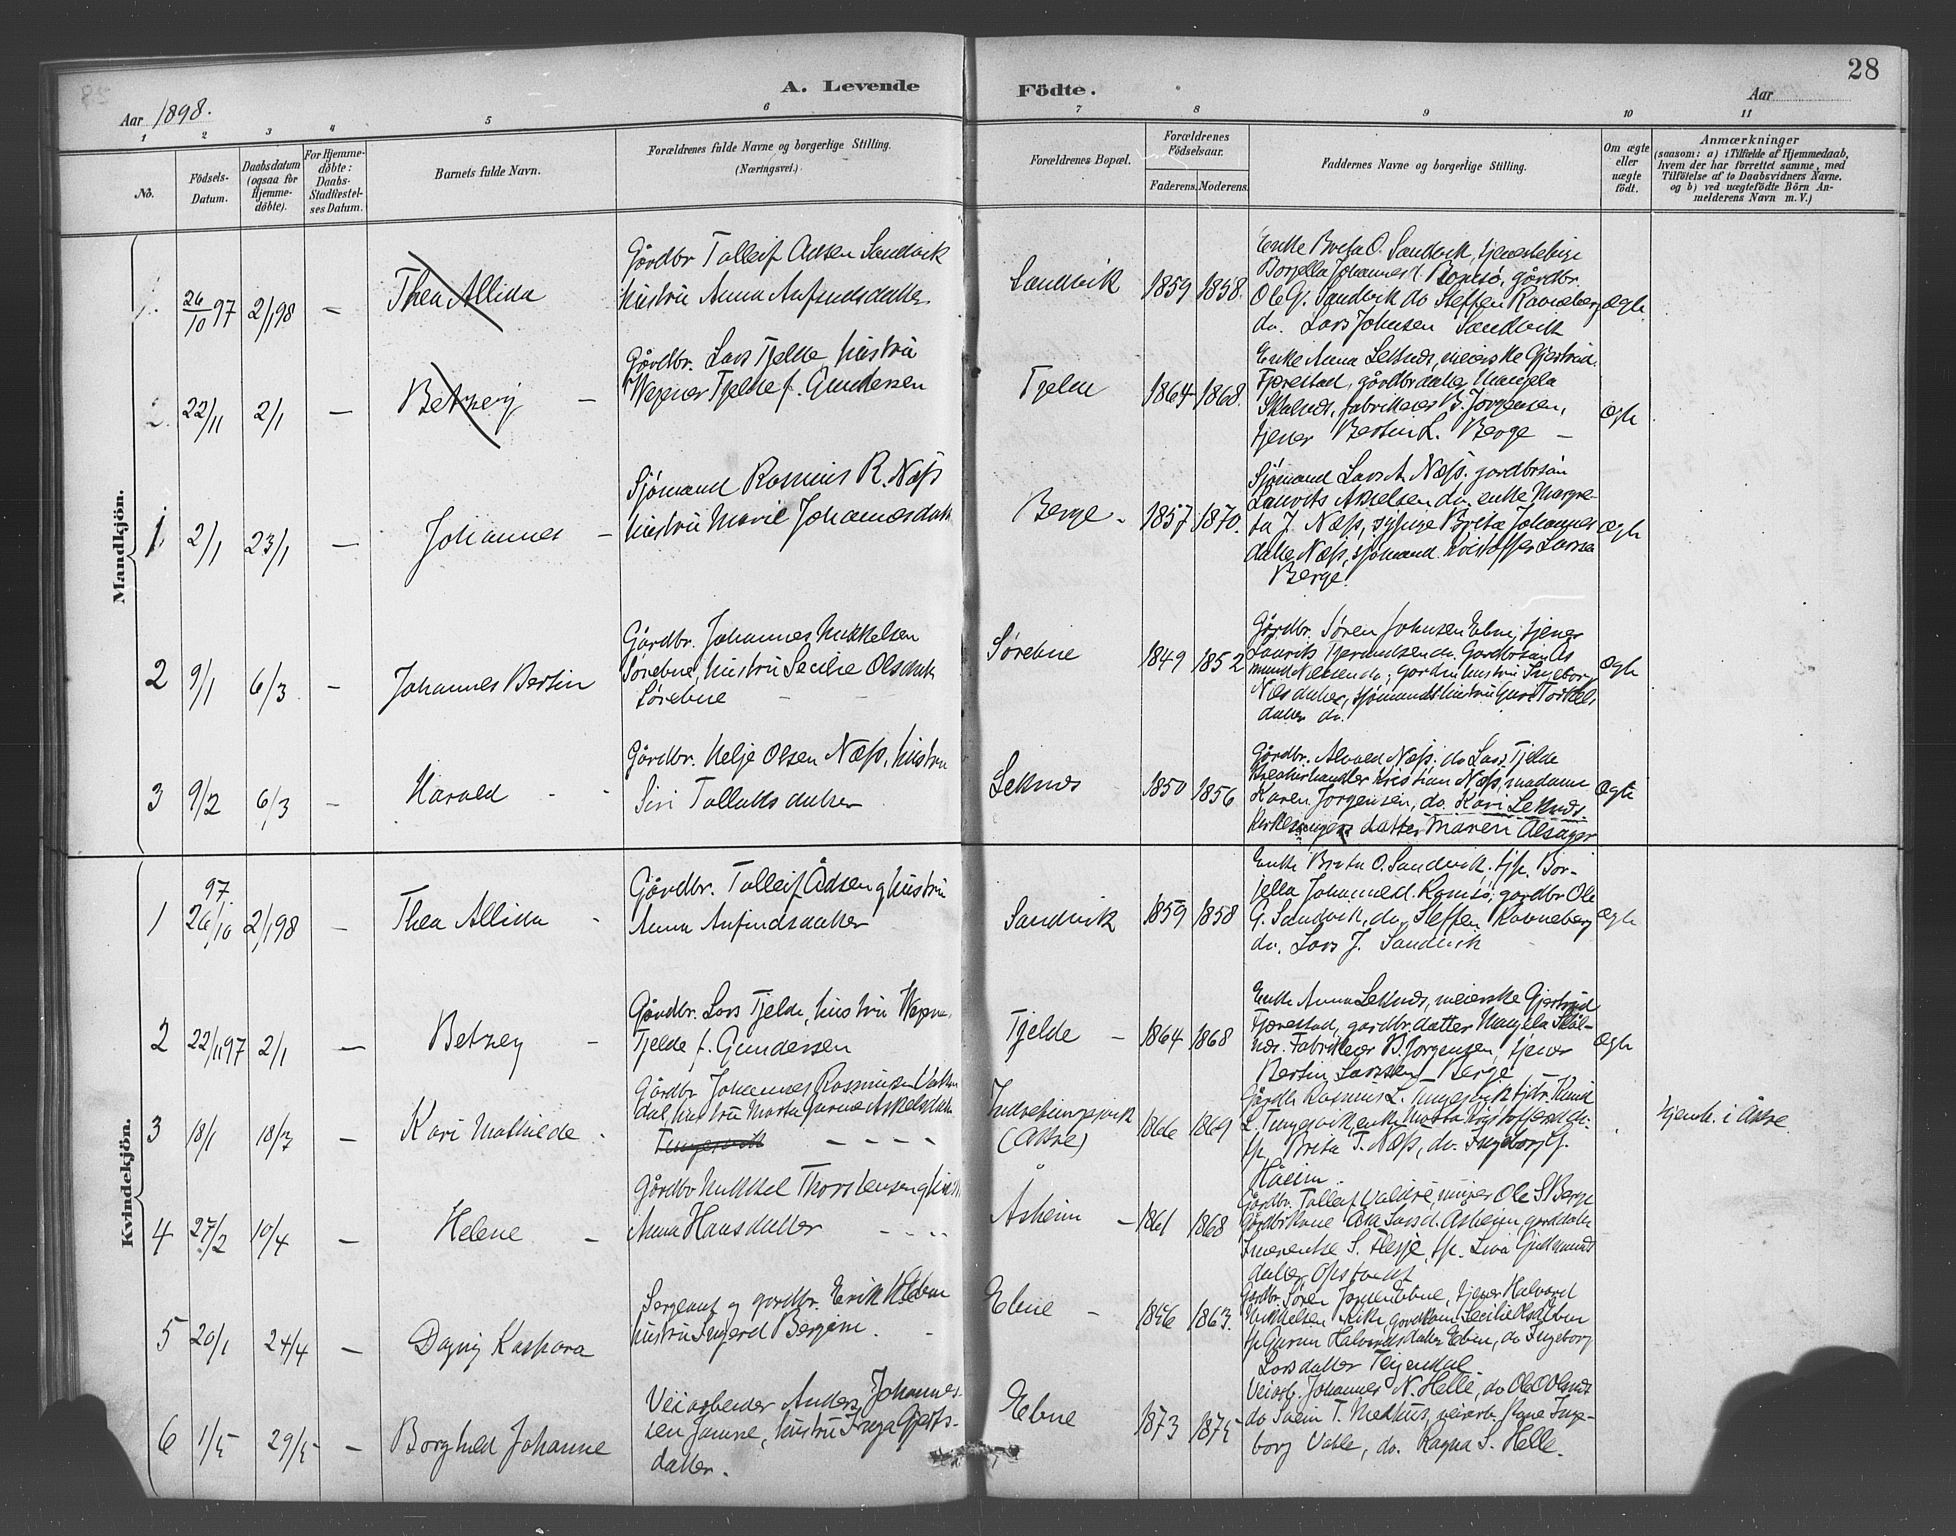 28
A. Levende Födte.
Aar 1898. Aar
1 2 3 4 5 6 7 8 9 10 11
No.
Födsels-Datum.
Daabsdatum (ogsaa for Hjemme-döbte).
For Hjemme-döbte: Daabs-Stadfæstel-ses Datum.
Barnets fulde Navn.
Forældrenes fulde Navne og borgerlige Stilling. (Næringsvei.)
Forældrenes Bopæl.
Forældrenes Födselsaar.
Faderens. Moderens.
Faddernes Navne og borgerlige Stilling.
Om ægte eller uægte födt.
Anmærkninger
(saasom: a) i Tilfælde af Hjemmedaab,
hvem der har forrettet samme, med
Tilföielse af to Daabsvidners Navne.
og b) ved uægtefödte Börn An-
melderens Navn m. V.)
Mandkjön.
1. 26/10 97 2/1 98 – Thea Allida
Gårdbr Tolleif Adsen Sandvik
hustru Anna Anfindsdatter
Sandvik 1859 1858.
Enke Brita O. Sandvik, tjenestepige
Borjella Johannesd. Romsö, gårdbr.
Ole G. Sandvik do Steffen Ravneberg
do. Lars Johnsen Sandvik
ægte
2. 22/11 2/1 – Betzey –
Gårdbr. Lars Tjelde, hustru
Tjelde f. Gundersen
Tjelde 1864 1868.
Enke Anna Leknes, meierske Gjertrud
Fjærestad, gårdbrdatter Mangela
fabrikeier B. Jorgensen,
tjener Bertin L. Berge –
ægte
1. 2/1 23/1 – Johannes –
Sjömand Rasmus R. Næss
hustru Marie Johannesdatter
Berge – 1857 1870.
Sjömand Lars A Næss. gardbrsön
Laurits Askelsen do, enke Margre-
ta J. Næss, sypige Brita Johannes
datter Næss, sjömand Kristoffer Larsen
Berge.
ægte
2 9/1 6/3 – Johannes Bertin
Gårdbr. Johannes Mikkelsen
Sörebne, hustru Secilie Olsdatter
Sörebne –
Sörebne 1849 1852
Gårdbr. Sören Johnsen Ebne, tjener
Laurits do. Gardbrsön As
mund Nilsen do, hustru Ingeborg
Nilsdatter, sjömandshustru Guri Torkels
datter do.
ægte
3 9/2 6/3 – Harald – -
Gårdbr. Helje Olsen Næss, hustru
Siri Tollaksdatter
Leknes 1850 1856
Gårdbr. Næss. do Lars Tjelde
Kreaturhandler Kristian Næss, madame
Karen Jorgensen, do. Kari Leknes
Kirkesangers datter Maren Alsager
ægte
Kvindekjön.
1 97. 26/10 2/1 98 – Thea Allida -
Gårdbr. Tolleif Ådsen g hustru
Anna Anfindsdatter
Sandvik 1859 1858
Enke Brita O. Sandvik, tjp. Bor-
jella Johannesd. Romsö, gårdbr Ole
G. Sandvik, do, Steffen Ravneberg
do. Lars J. Sandvik
ægte
2 22/11 97 2/1 – Betzey –
Gårdbr. Lars Tjelde, hustru
Tjelde f. Gundersen
Tjelde – 1864 1868
Enke Anna Leknes, meierske Gjertrud
Fjærestad, gardbr.datter Mangela
Fabrikeier B. Jorgensen, tjener
Bertin Larssen Berge
ægte
3 18/1 18/3 – Kari Mathilde -
Gårdbr Johannes Rasmussen
dal, hustru Marta Askelsdatter
– – – –
(Åkre) 1866 1869
Gårdbr Rasmus L.
L. enke Marta
tjp. Brita T. Næss, do. Ingeborg
Håeim.
Hjemh. i Åkre.
4 27/2 10/4 – Helene –
Gårdbr Mikkel Thorstensen g hustru
Anna Hansdatter – - - -
Åsheim – 1861 1868
Gårdbr. Tolleif Ole S Berge
Gårdbrkone Åsheim, gårddatter
S. Flesje, tjp. Gudmunds
datter Opstvedt
5 20/1 24/4 – Dagny Kaspara
Sergeant g gardbr. Erik
hustru Ingerd Bergine. -
Ebne – 1846 1863.
Gårdbr. Sören Ebne, tjener Halvard
Mikkelsen gardkone Secilie Ebne
tjp. Gurun Halvardsdatter Ebne, do Ingeborg
Larsdatter Teigendal
6 1/5 29/5 – Borghild Johanne
Veiarbeider Anders Johannes-
sen hustru Inga Gjerts-
datter.
Ebne 1873 1875
Veiarb. Johannes N. Helle, do Ole
do Svein T. Medhus, veiarb. Inge-
borg do. Ragna S. Helle.